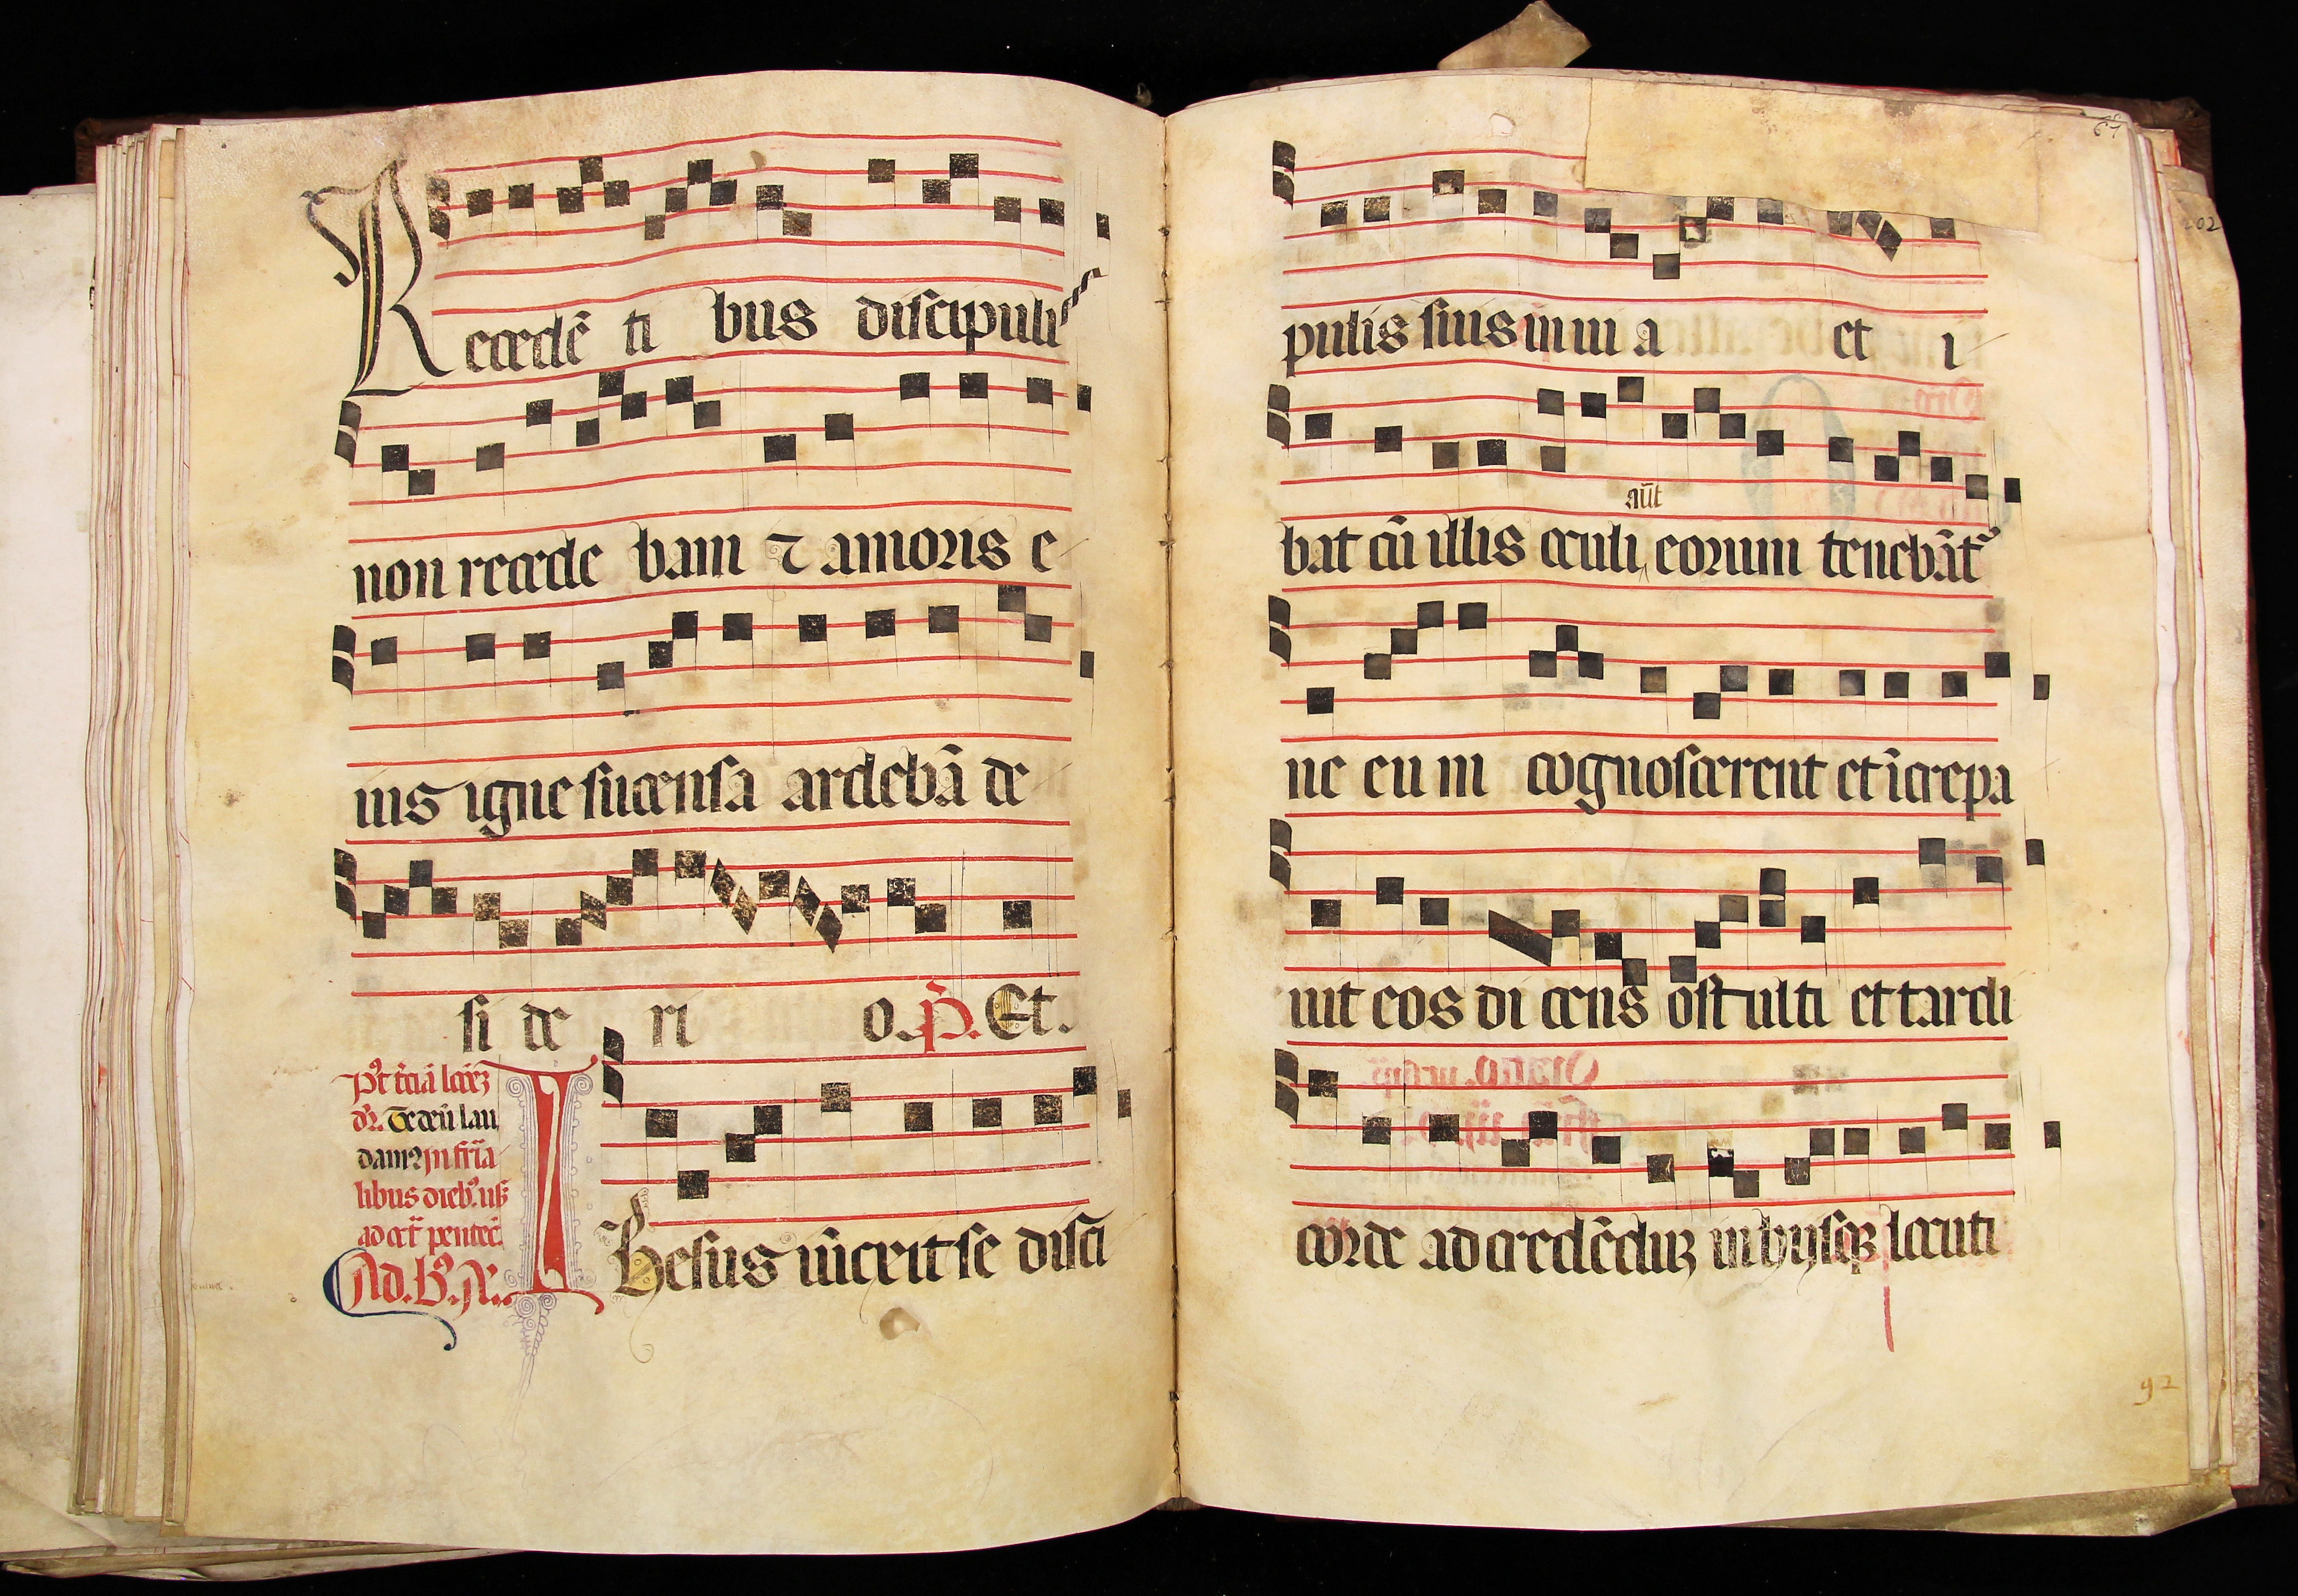 Recedē ti bus discipulis
non recede bam ⁊ amoris e
ius igne sucensa ardebā de
si de ri o. p̄. Et.
pꝰt t̄ciā
dr̄. Te deū lau
damꝰ In fr̄ia
libus dieb.
ad oct̄ pentec̄.
Ad. B. A.
Ihesus iūxit se disci
67
202
pulis suis in ui a et i
bat cū illis oculi eorum tenebāt᷑
aūt
ne eu m cognoscerent et īcrepa
uit eos di cens o stulti et tardi
corde ad credēduꝫ in hys q̄ locuti
92